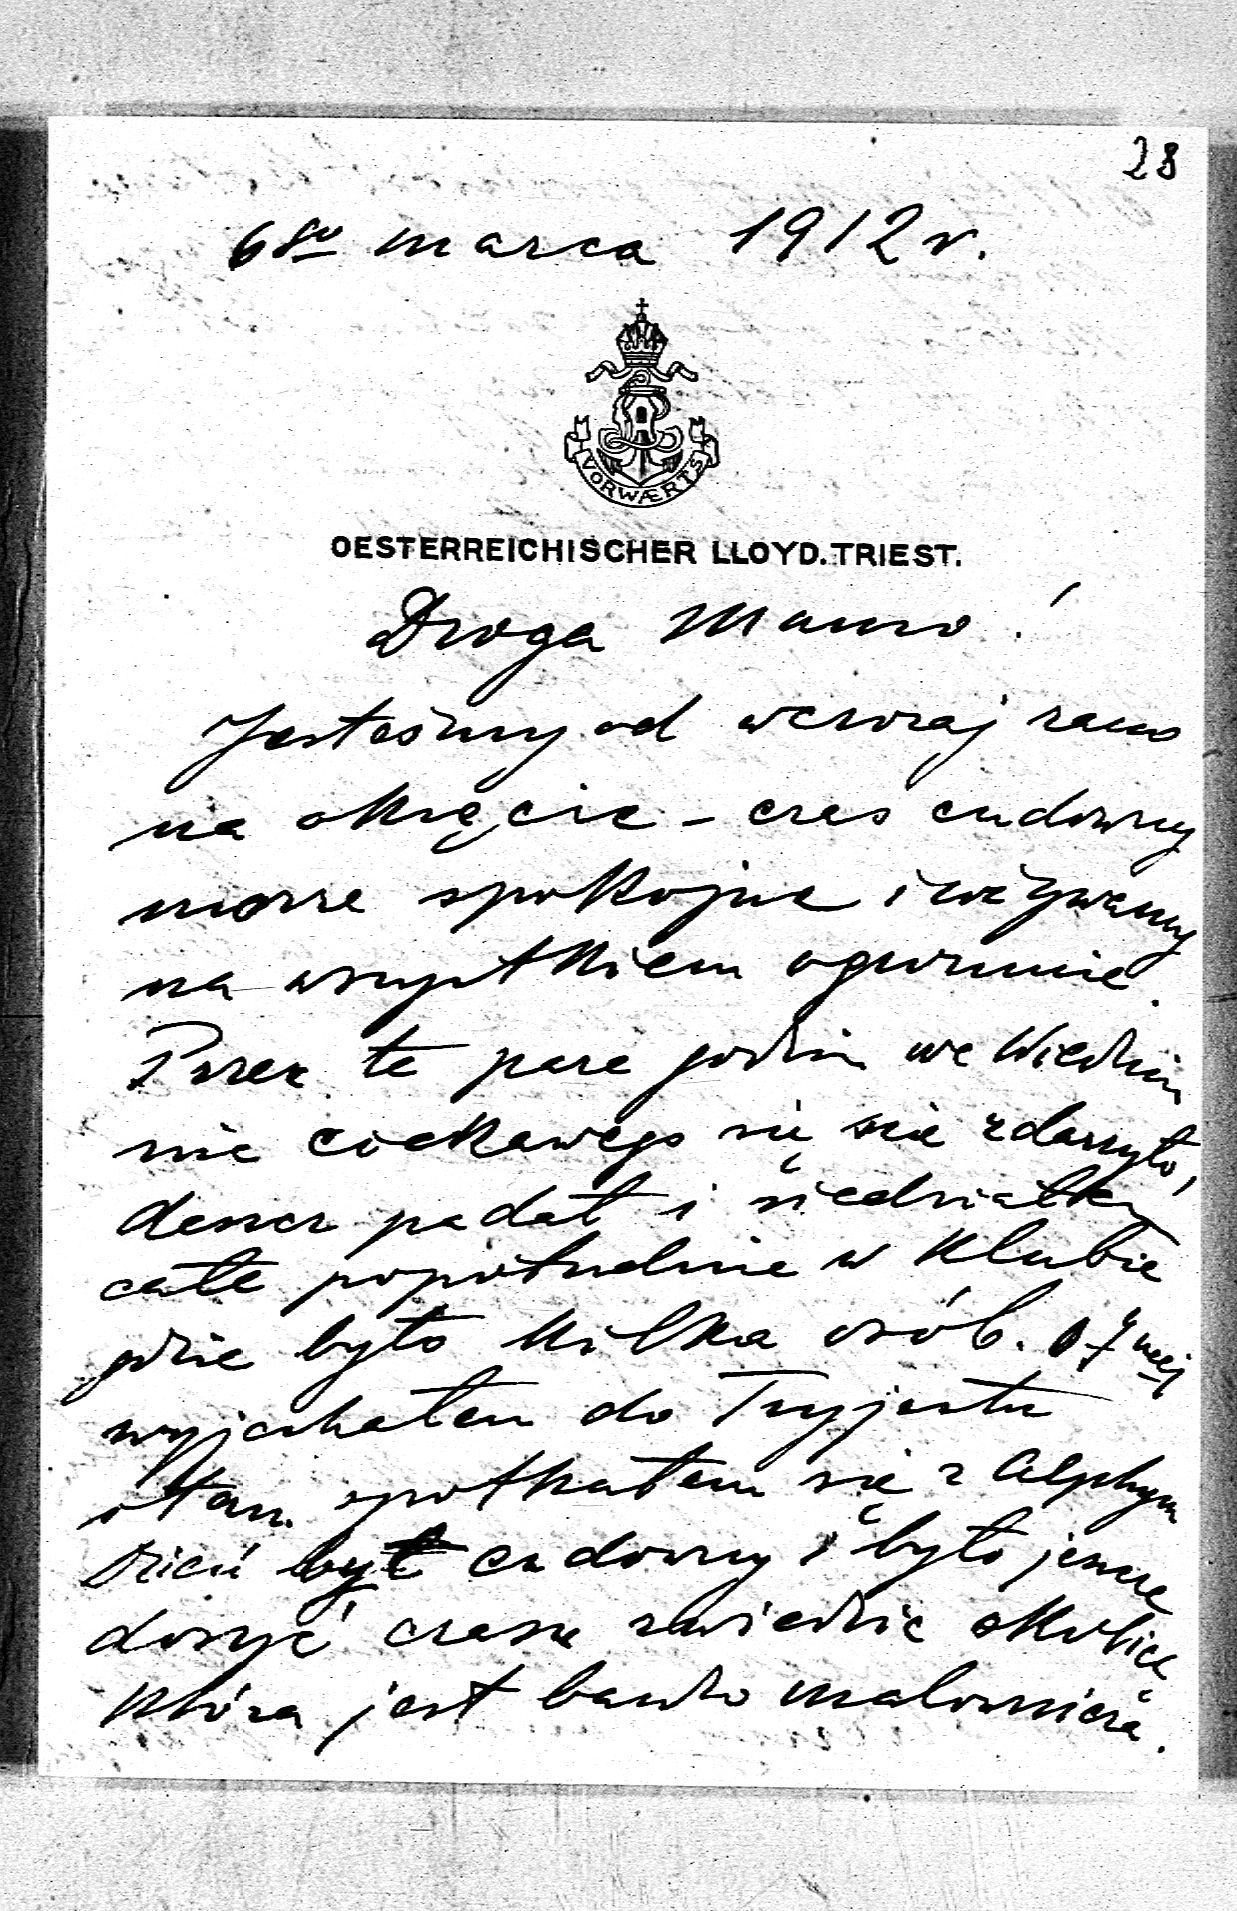 28
6go marca 1912 r.
VORWÆRTS
OESTERREICHISCHER LLOYD. TRIEST.
Droga Mamo!
Jesteśmy od wczoraj rano
na okręcie – czas cudowny
morze spokojne i używamy
na wszystkiem ogromnie.
Przez te parę godzin we Wiedniu
nic ciekawego się nie zdarzyło,
deszcz padał i siedziałem
całe popołudnie w Klubie
gdzie było kilka osób. O 7mej
wyjechałem do Tryjestu
i tam spotkałem się z Alphym
Dzień był cudowny i było jeszcze
dosyć czasu zwiedzić okolicę
która jest bardzo malownicza.